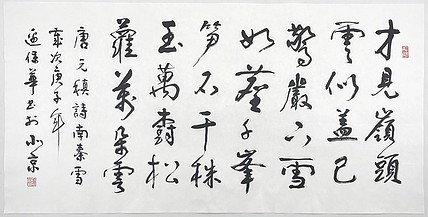 才見嶺頭
雲似蓋已
驚巖下雪
如塵千峯
筍石千株
玉萬樹松
蘿萬朵雲
唐元稹詩南秦雪
歲次庚子年
保華书於北京